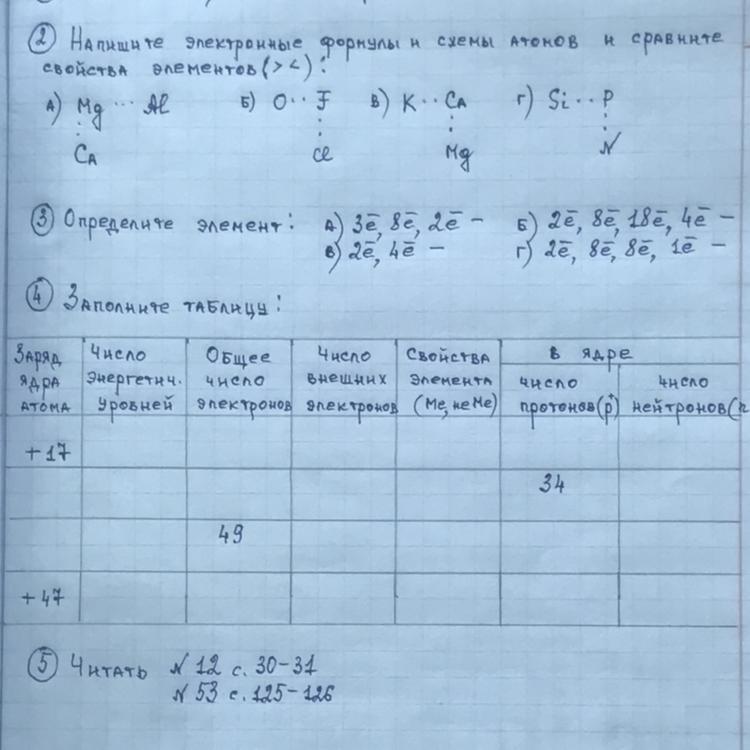 ② Напишите электронные формулы и схемы атомов и сравните
свойства элементов (><):
А) Mg ··· Al Б) O ·· F В) K ·· Ca Г) Si ·· P
Ca Cl Mg N
③ Определите элемент: А) 3ē, 8ē, 2ē – Б) 2ē, 8ē, 18ē, 4ē –
В) 2ē, 4ē – Г) 2ē, 8ē, 8ē, 1ē –
④ Заполните таблицу:
Заряд ядра атома
Число энергетич. уровней
Общее число электронов
Число внешних электронов
Свойства элемента (Me, неMe)
в ядре
число протонов (p⁺)
число нейтронов (n
+17
34
49
+47
⑤ Читать № 12 с. 30-31
№ 53 с. 125-126